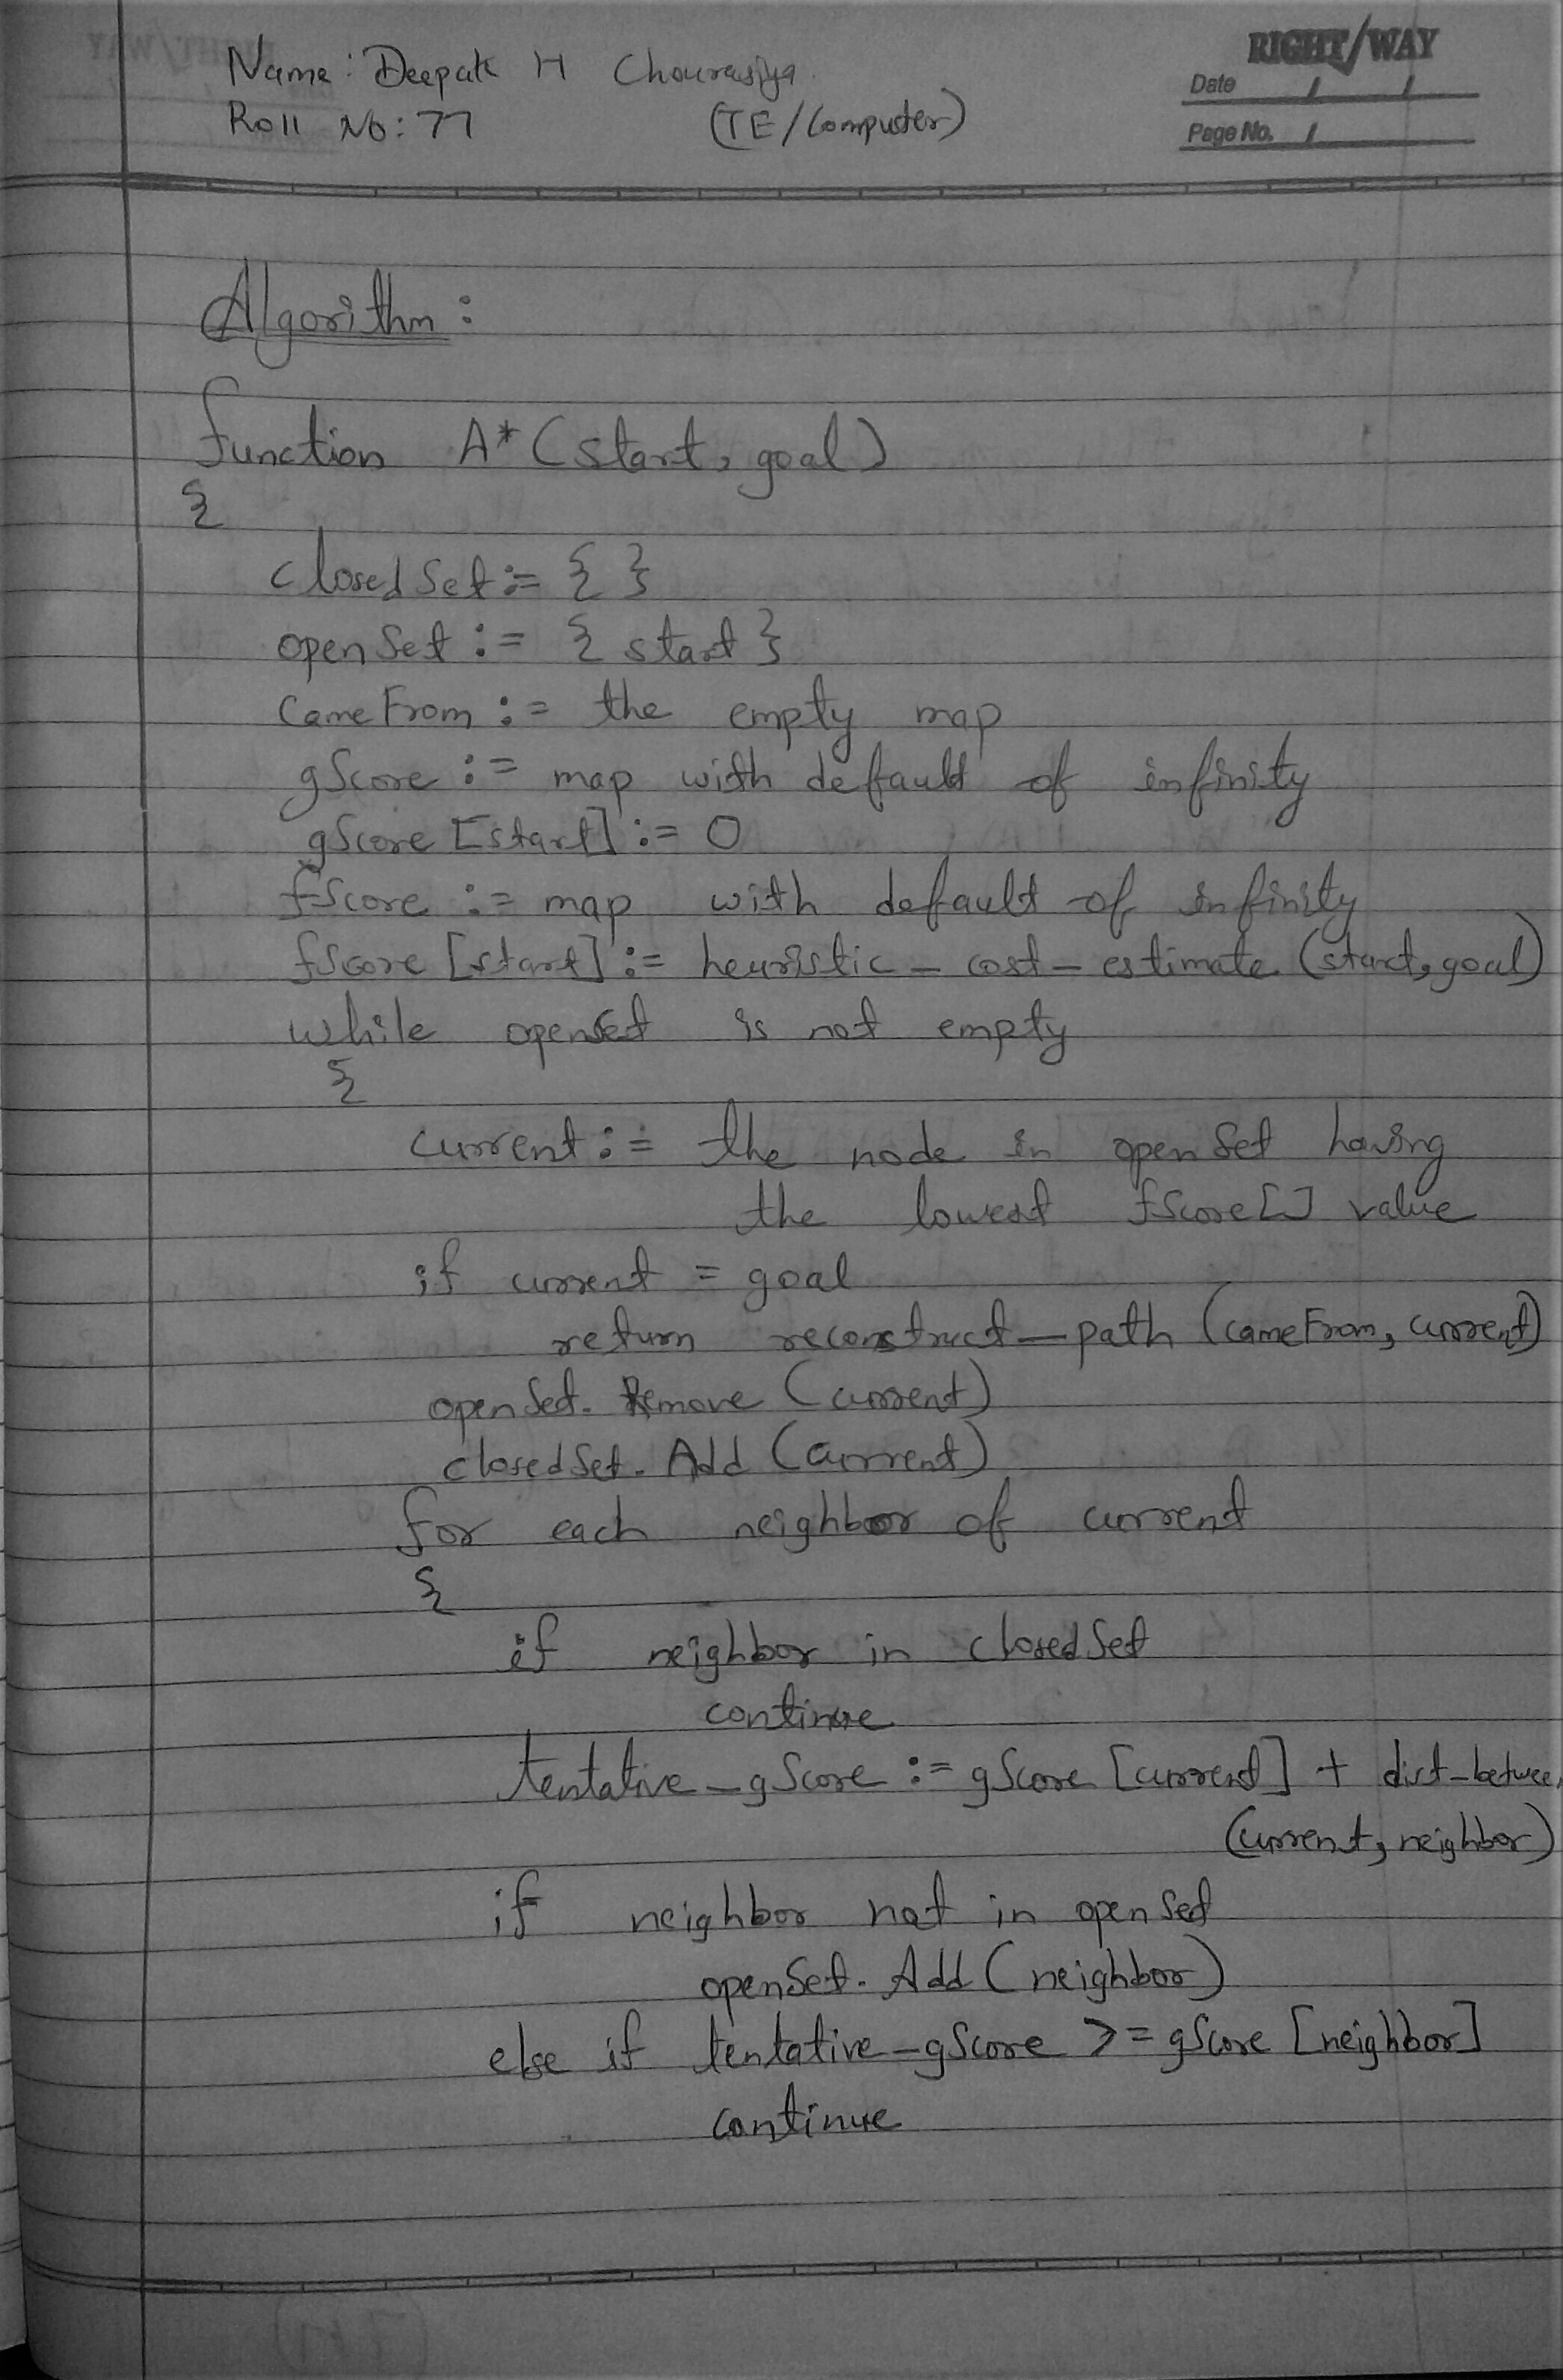 RIGHT/WAY
Name: Deepak H Chourasiya
Date / /
Roll No: 77 (TE/Computer)
Page No. /
Algorithm:
function A* (start, goal)
{
closedSet := { }
openSet := { start }
CameFrom := the empty map
gScore := map with default of infinity
gScore [start] := 0
fScore := map with default of infinity
fScore [start] := heuristic_cost_estimate (start, goal)
while openSet is not empty
{
current := the node in openSet having
the lowest fScore[] value
if current = goal
return reconstruct_path (cameFrom, current)
openSet. Remove (current)
closedSet. Add (current)
for each neighbor of current
{
if neighbor in closedSet
continue
tentative_gScore := gScore [current] + dist_betwee
(current, neighbor)
if neighbor not in openSet
openSet. Add (neighbor)
else if tentative_gScore >= gScore [neighbor]
continue